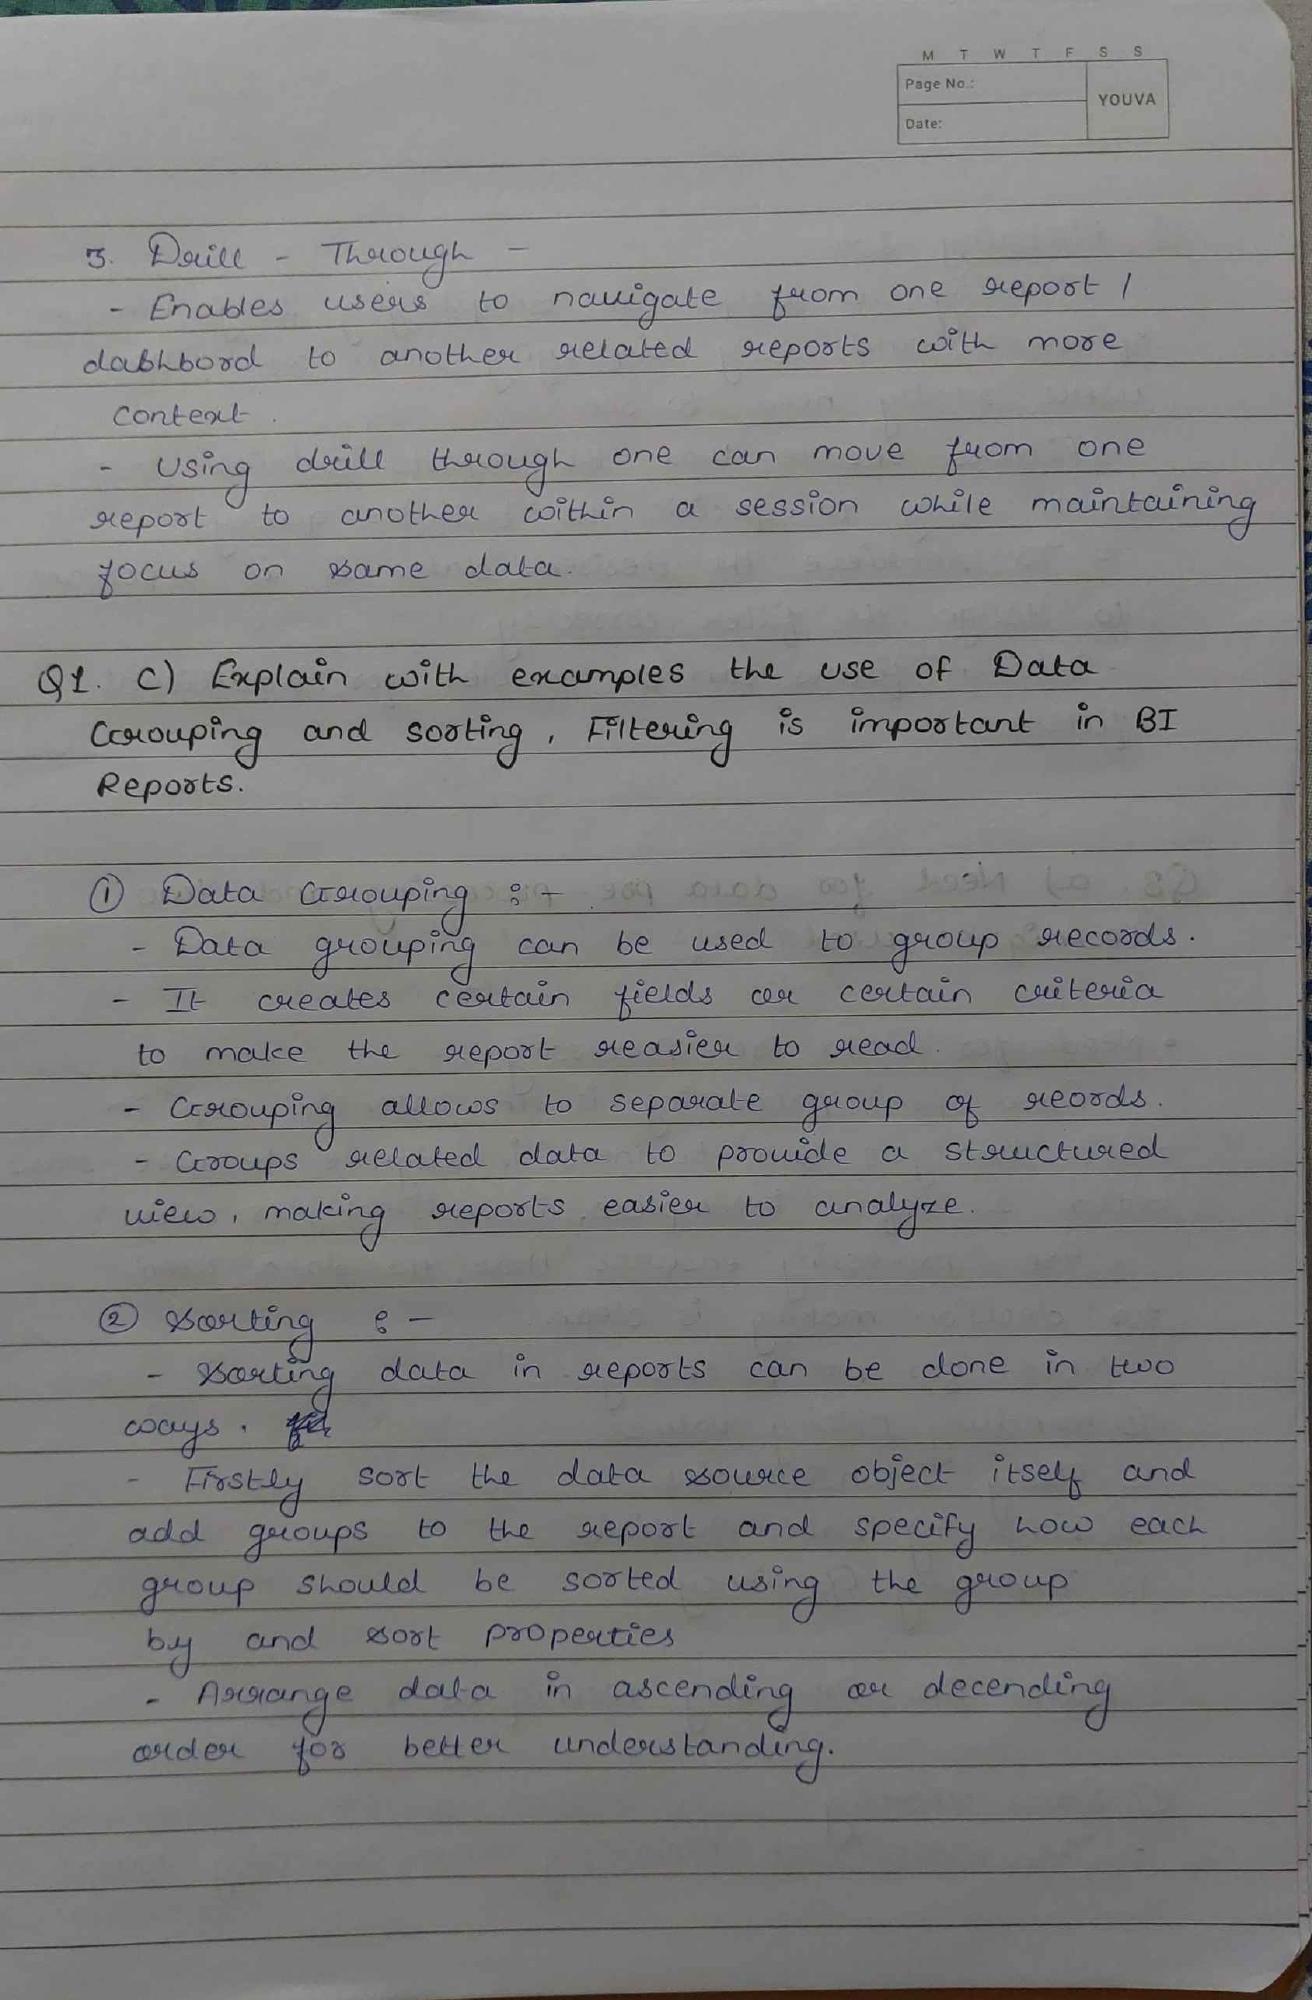 M T W T F S S
Page No.:
YOUVA
Date:
3. Drill - Through -
- Enables users to navigate from one report /
dabhbord to another related reports with more
context.
- Using drill through one can move from one
report to another within a session while maintaining
focus on same data.
Q1. C) Explain with examples the use of Data
Grouping and sorting, Filtering is important in BI
Reports.
① Data Grouping :-
- Data grouping can be used to group records.
- It creates certain fields or certain criteria
to make the report reasier to read.
- Grouping allows to separate group of reords.
- Groups related data to provide a structured
view, making reports easier to analyze.
② Sorting :-
- Sorting data in reports can be done in two
ways.
- Firstly sort the data source object itself and
add groups to the report and specify how each
group should be sorted using the group
by and sort properties
- Arrange data in ascending or decending
order for better understanding.